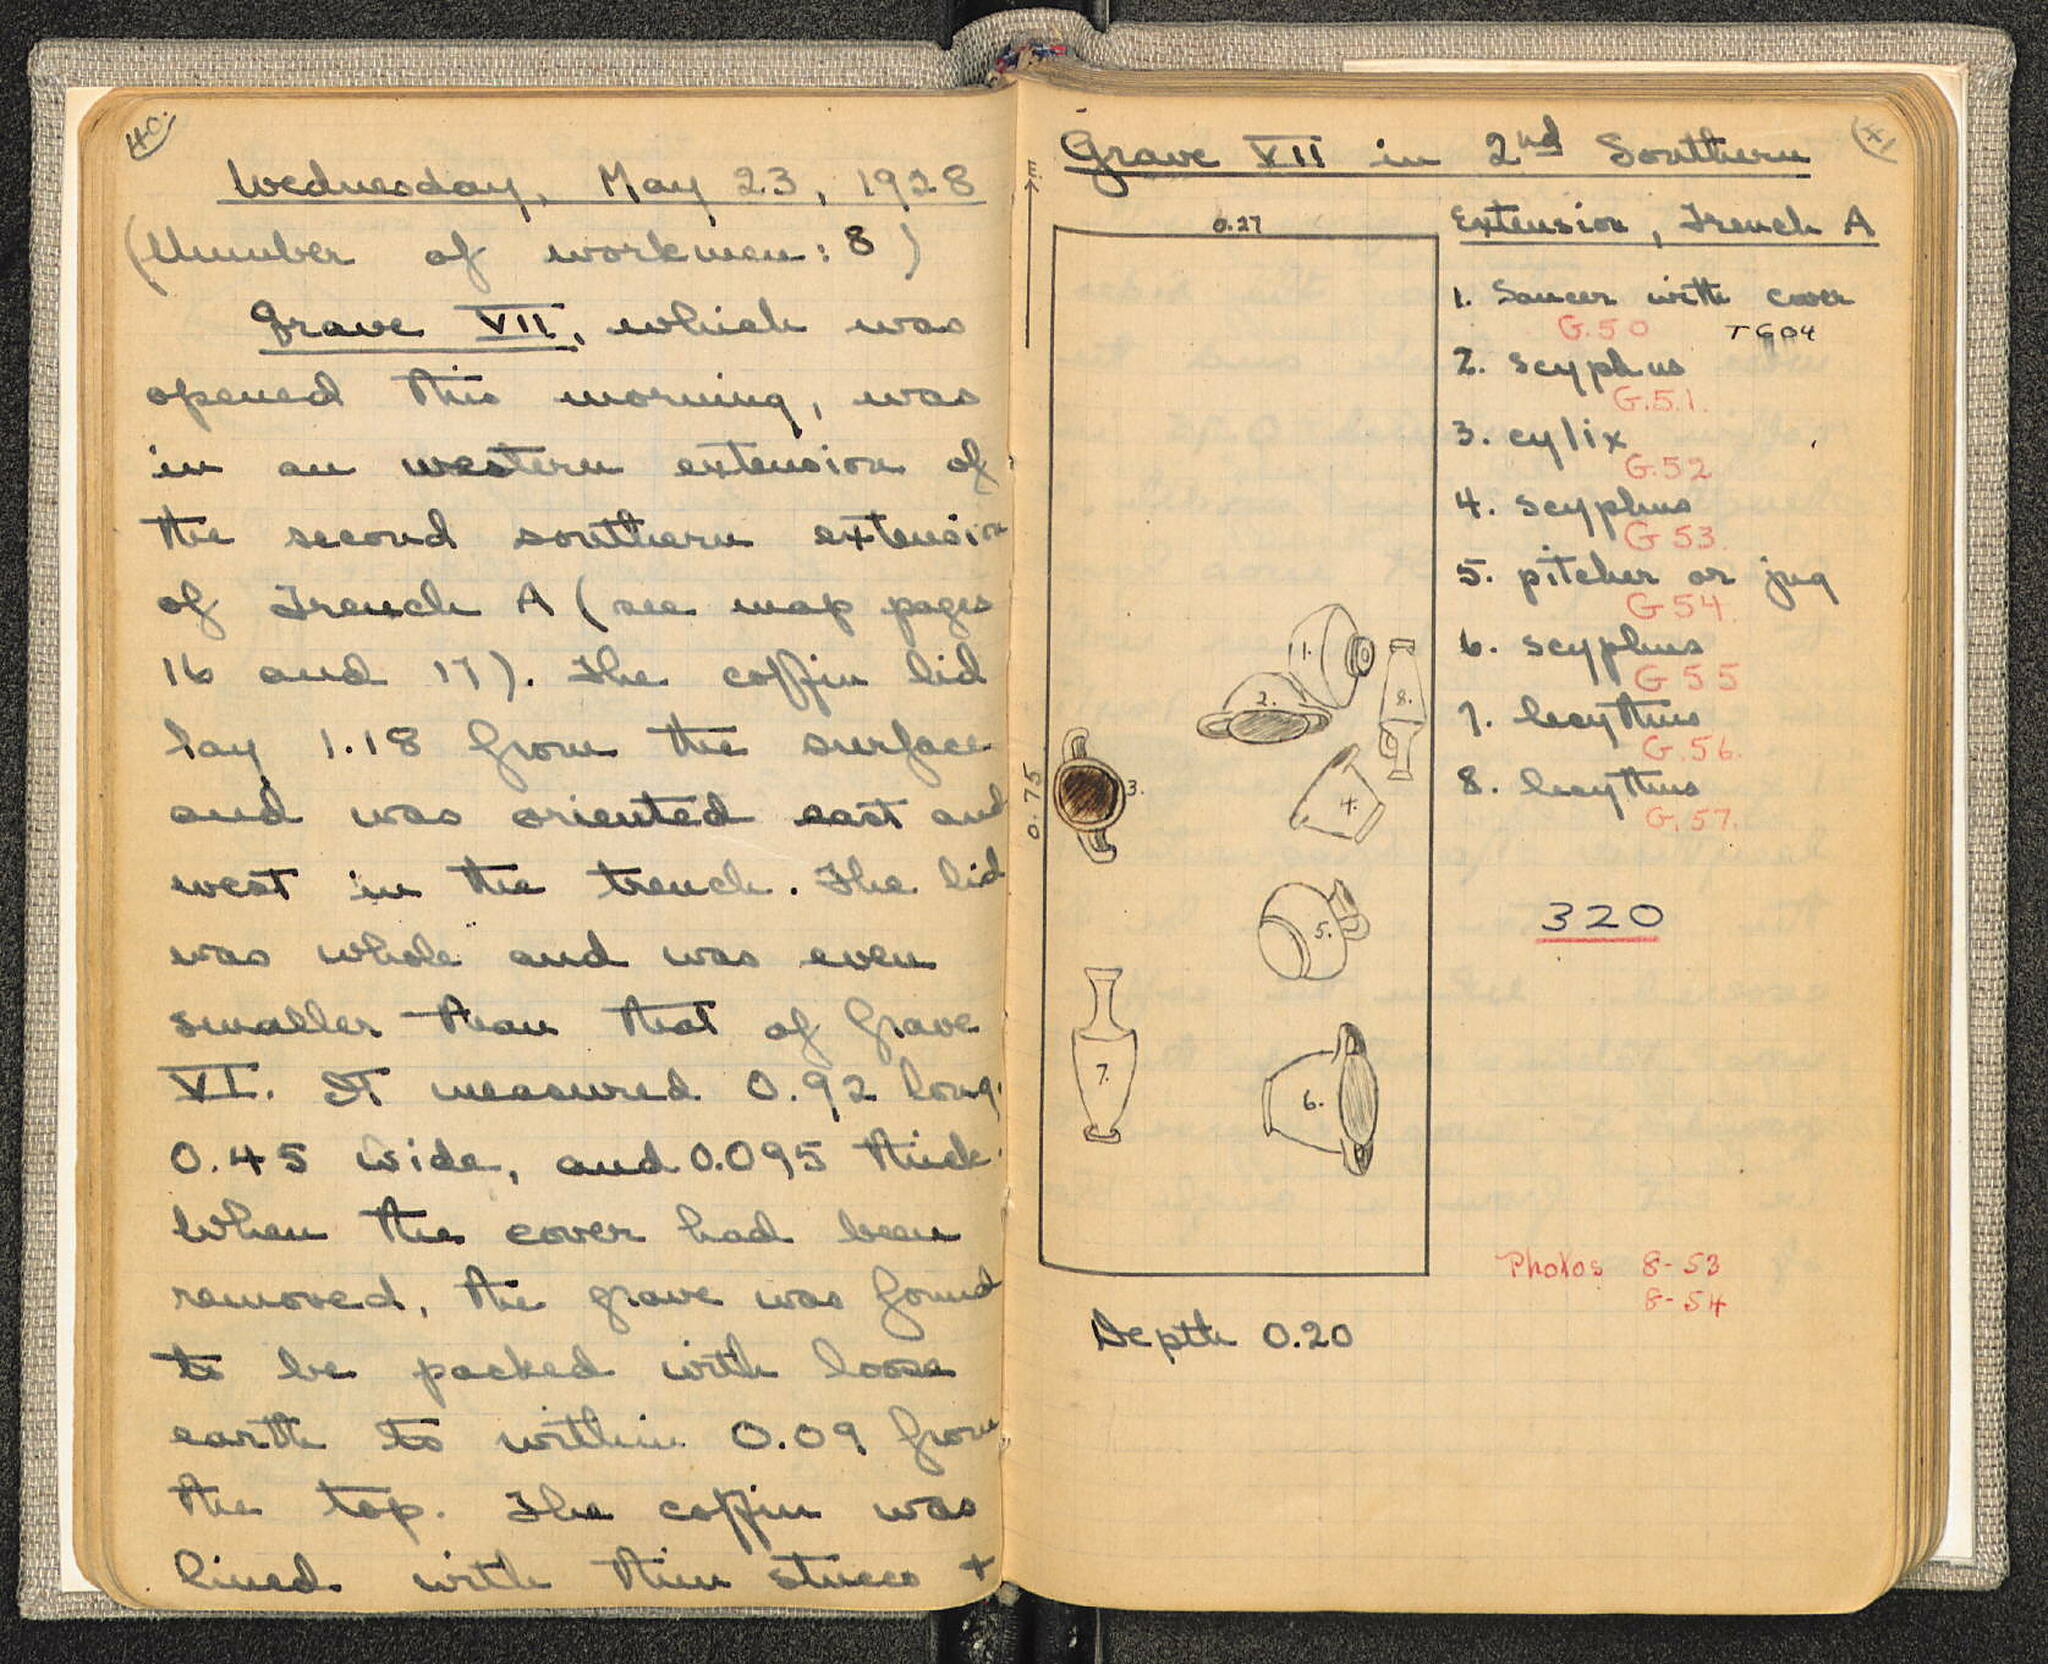 40.
Wednesday, May 23, 1928
(Number of workmen: 8)
Grave VII, which was
opened this morning, was
in an western extension of
the second southern extension
of Trench A (see map pages
16 and 17). The coffin lid
lay 1.18 from the surface
and was oriented east and
west in the trench. The lid
was whole and was even
smaller than that of Grave
VI. It measured 0.92 long,
0.45 wide, and 0.095 thick.
When the cover had been
removed, the grave was found
to be packed with loose
earth to within 0.09 from
the top. The coffin was
lined with thin stucco +
Grave VII in 2nd Southern
Extension, Trench A
E
0.27
0.75
1.
2.
3.
4.
5.
6.
7.
8.
1. Saucer with cover
G.50 TG04
2. scyphus
G.51.
3. cylix
G.52
4. scyphus
G 53.
5. pitcher or jug
G 54.
6. scyphus
G 55
7. lecythus
G.56.
8. lecythus
G.57.
320
Photos 8-53
8-54
Depth 0.20